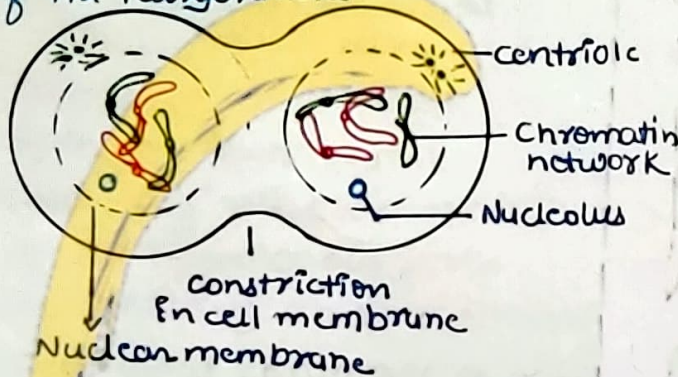 Centriole
Chromatin
network
Nucleolus
constriction
En cell membrane
Nuclear membrane